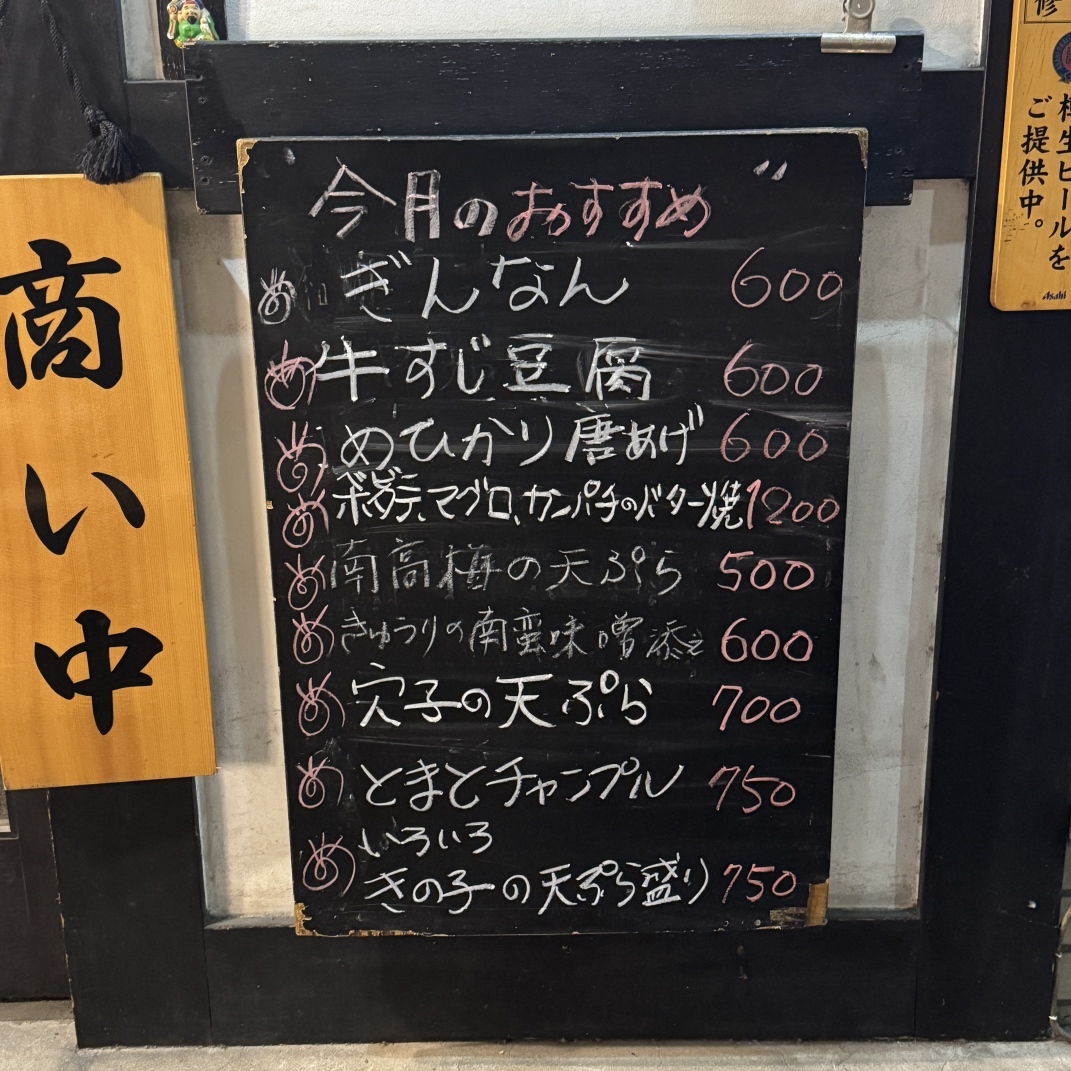 商い中
今月のおすすめ
め ぎんなん 600
め 牛すじ豆腐 600
め めひかり唐あげ 600
め ホタテ、マグロ、カンパチのバター焼 1200
め 南高梅の天ぷら 500
め きゅうりの南蛮味噌添え 600
め 穴子の天ぷら 700
め とまとチャンプル 750
め いろいろ
きの子の天ぷら盛り 750
修
樽生ビールを
ご提供中。
Asahi